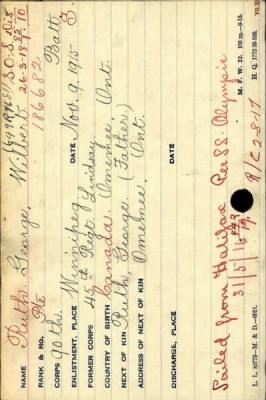 (649-R-9685) S.O.S. Dis
NAME Ruth George, Wilbert 26-3-19
RANK & NO. Pte 186682
CORPS 90th. Batt
ENLISTMENT, PLACE Winnipeg DATE Nov. 9, 1915
FORMER CORPS 45th Regt Lindsay
COUNTRY OF BIRTH Canada. Omemee, Ont.
NEXT OF KIN Ruth, George. (Father)
ADDRESS OF NEXT OF KIN Omemee, Ont.
DISCHARGE, PLACE DATE
Sailed from Halifax Per SS. Olympic
31/5/16
R/C 2-8-17
L. L. 83779—M. & D.—6021. M. F. W. 22.
H. Q. 1772-39-839.